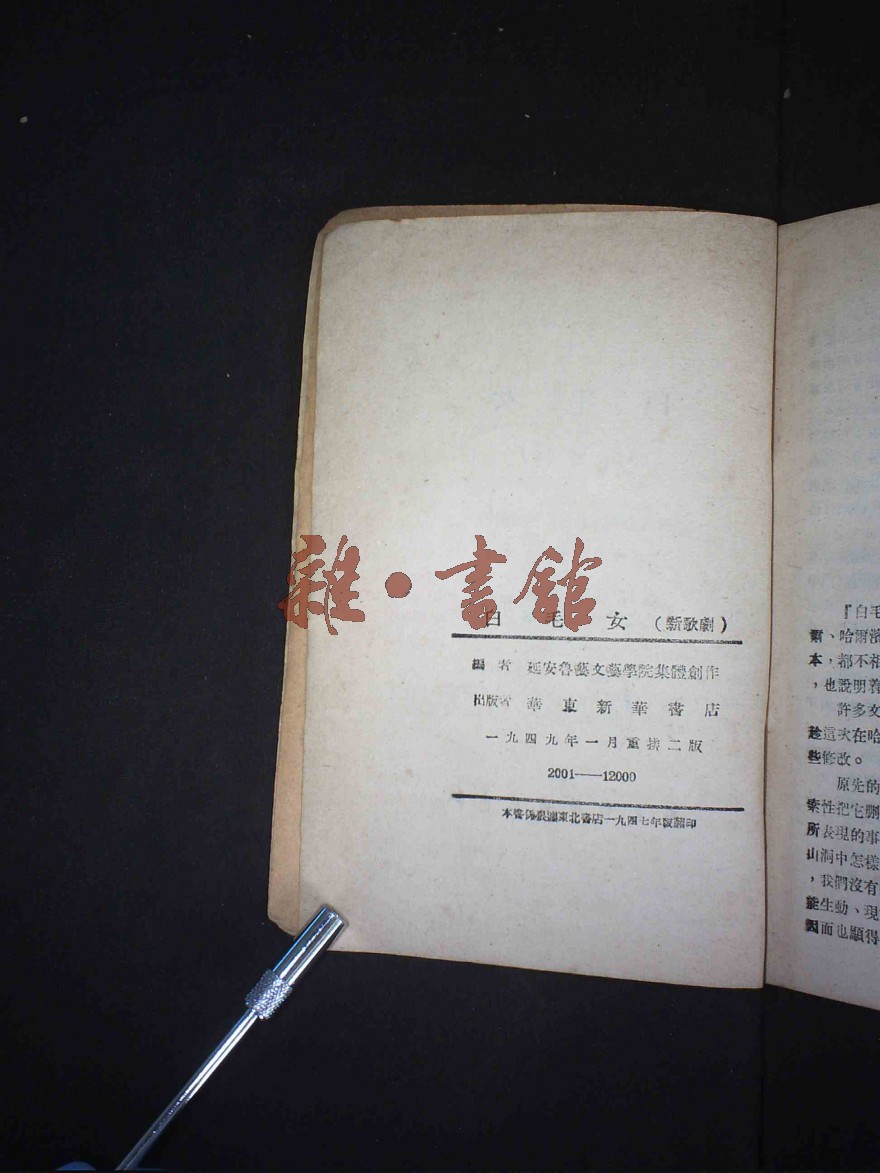 雜•書館
白毛女（新歌劇）
編者 延安魯藝文藝學院集體創作
出版者 華東新華書店
一九四九年一月重排二版
2001——12000
本書係根據東北書店一九四七年版翻印
『白毛
爾、哈爾濱
本，都不相
，也說明着
許多文
趁這次在哈
些修改。
原先的
索性把它删
所表現的事
山洞中怎樣
，我們沒有
能生動、現
因而也顯得